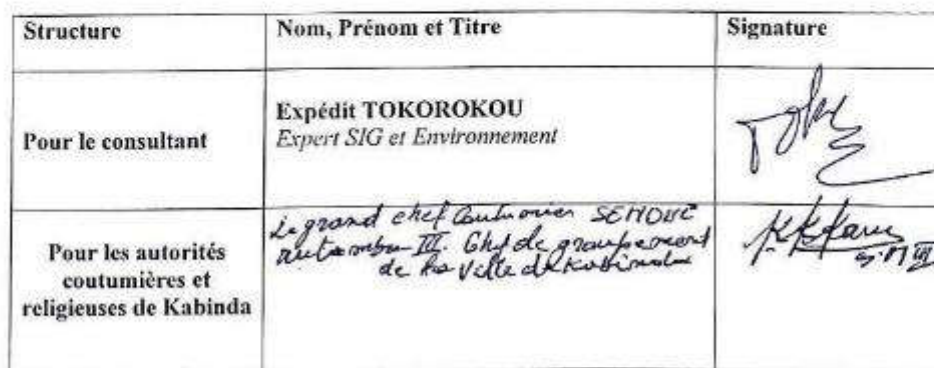 Structure
Nom, Prénom et Titre
Signature
Pour le consultant
Expédit TOKOROKOU
Expert SIG et Environnement
Pour les autorités
coutumières et
religieuses de Kabinda
Le grand chef Coutumier
III. Chef de groupement
de la ville de Kabinda